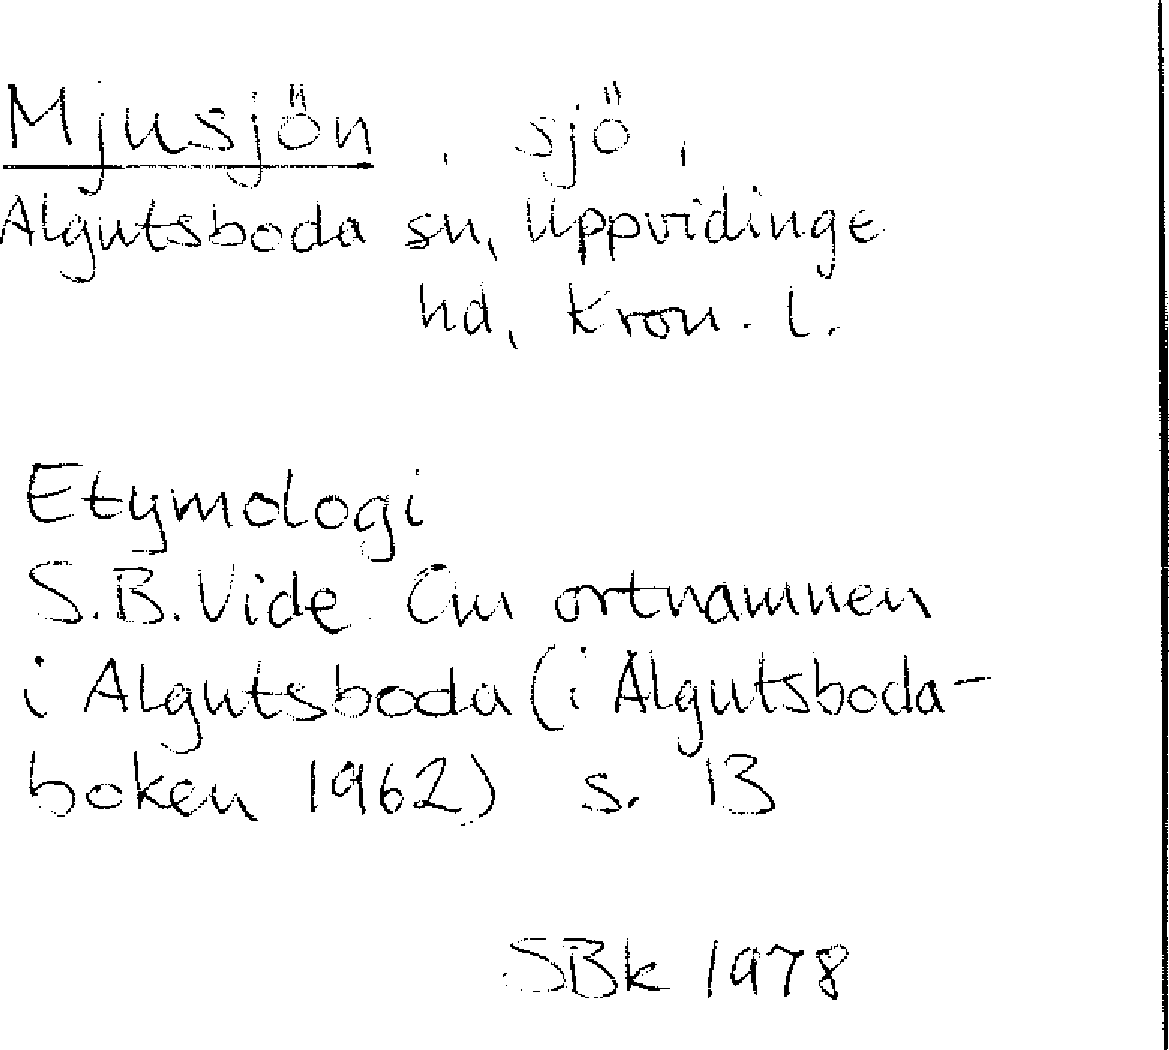 Mjusjön, sjö,
Algutsboda sn, Uppvidinge
hd, Kron. l.
Etymologi
S.B. Vide. Om ortnamnen
i Algutsboda (i Algutsboda-
boken 1962) s. 13
SBk 1978